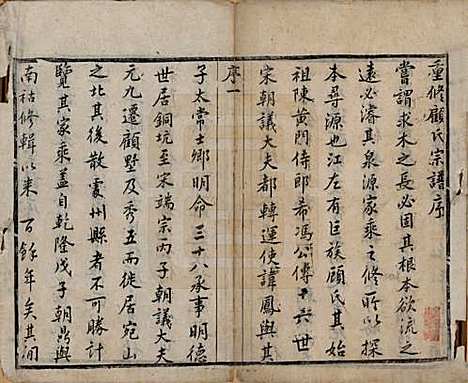 重修顧氏宗譜序
嘗謂求木之長必固其根本欲流之
遠必濬其泉源家乘之修所以探
本尋源也江左有巨族顧氏其始
祖陳黃門侍郎希馮公傳十六世
宋朝議大夫都轉運使諱鳳與其
序一
子太常士卿明命三十八承事明德
世居銅坑至宋端宗丙子朝議大夫
元九遷顧墅及秀五而徙居宛山
之北其後散處州縣者不可勝計
覽其家乘蓋自乾隆戊子朝爵與
南枯修輯以來百餘年矣其間